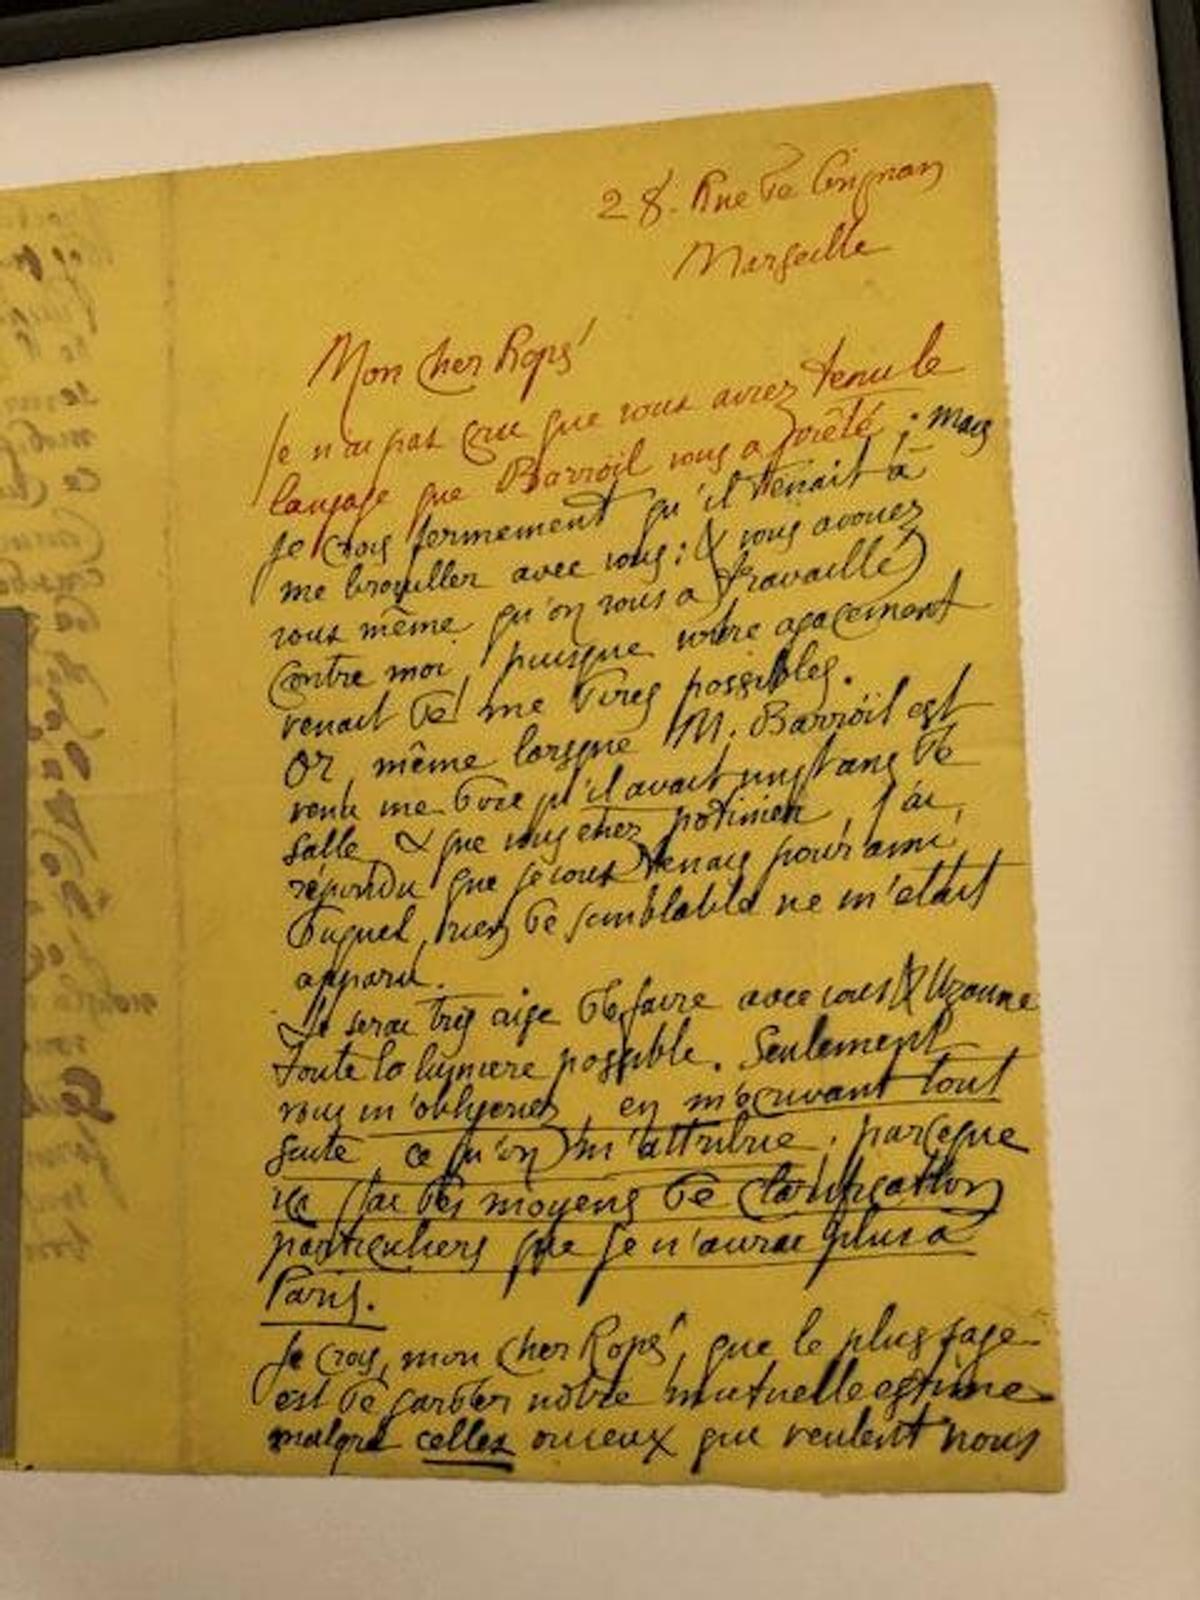 28. Rue de Grignan
Marseille
Mon cher Rops
Je n'ai pas cru que vous aviez tenu le
langage que Barroil vous a prêté ; mais
je crois fermement qu'il tenait à
me brouiller avec vous : (& vous avouez
vous même qu'on vous a travaillé)
contre moi, puisque votre agacement
venait de me dires possibles.
Or, même lorsque M. Barroil est
venu me dire qu'il avait un
salle & que vous étiez potinier, j'ai
répondu que je vous tenais pour ami
duquel rien de semblable ne m'était
apparu.
Je serai très aise de faire avec vous & Uzanne
toute la lumière possible. Seulement
vous m'obligeriez, en m'écrivant tout
suite ce qu'on m'attribue ; parceque
ici j'ai des moyens de clarification
particuliers que je n'aurai plus à
Paris.
Je crois, mon cher Rops, que le plus sage
est de garder notre mutuelle estime
malgré celles ou ceux qui veulent nous